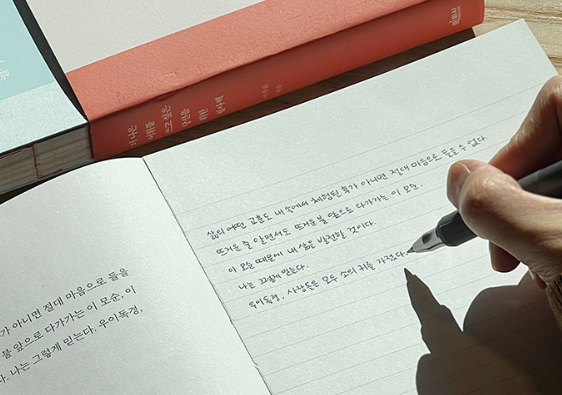 더 나은
어휘를
쓰고 싶은
당신을
위한
필사책
빅피시
가 아니면 절대 마음으로 들을
불 앞으로 다가가는 이 모순, 이
다. 나는 그렇게 믿는다. 우이독경,
삶의 어떤 교훈도 내 속에서 체험된 후가 아니면 절대 마음으로 들을 수 없다.
뜨거운 줄 알면서도 뜨거운 불 앞으로 다가가는 이 모순.
이 모순 때문에 내 삶은 발전할 것이다.
나는 그렇게 믿는다.
우이독경, 사람들은 모두 소의 귀를 가졌다.